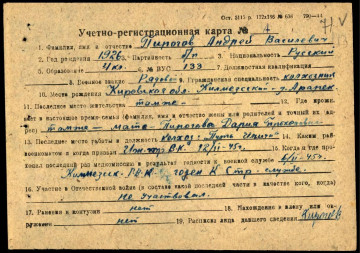 Ост. 5145 р. 172х186 № 656 790—44
Учетно-регистрационная карта №
1. Фамилия, имя и отчество Пирогов Андрей Васильевич
2. Год рождения 1926г. Партийность б/п 3. Национальность Русский
5. Образование 4 кл. 6. № ВУС 133 7. Должностная квалификация
8. Военное звание Рядовой 9. Гражданская специальность колхозник
10. Место рождения Кировская обл. Кильмезский р.
11. Последнее место жительства там-же 12. Где прожи-
вает в настоящее время семья (фамилия, имя и отчество жены или родителей и точный их ад-
рес) там-же - мать - Пирогова Дарья
13. Последнее место работы и должность Колхоз "Путь 14. Каким рай-
военкоматом и когда призван РВК 15. Когда и где про-
ходил последний раз медкомиссию и результат годности к военной службе
Кильмезск. РВК - годен к стр. службе.
16. Участие в Отечественной войне (в составе какой последней части и качестве кого, когда)
не участвовал.
17. Ранения и контузии нет 18. Нахождение в плену или ок-
ружении нет 19. Расписка лица давшего сведения